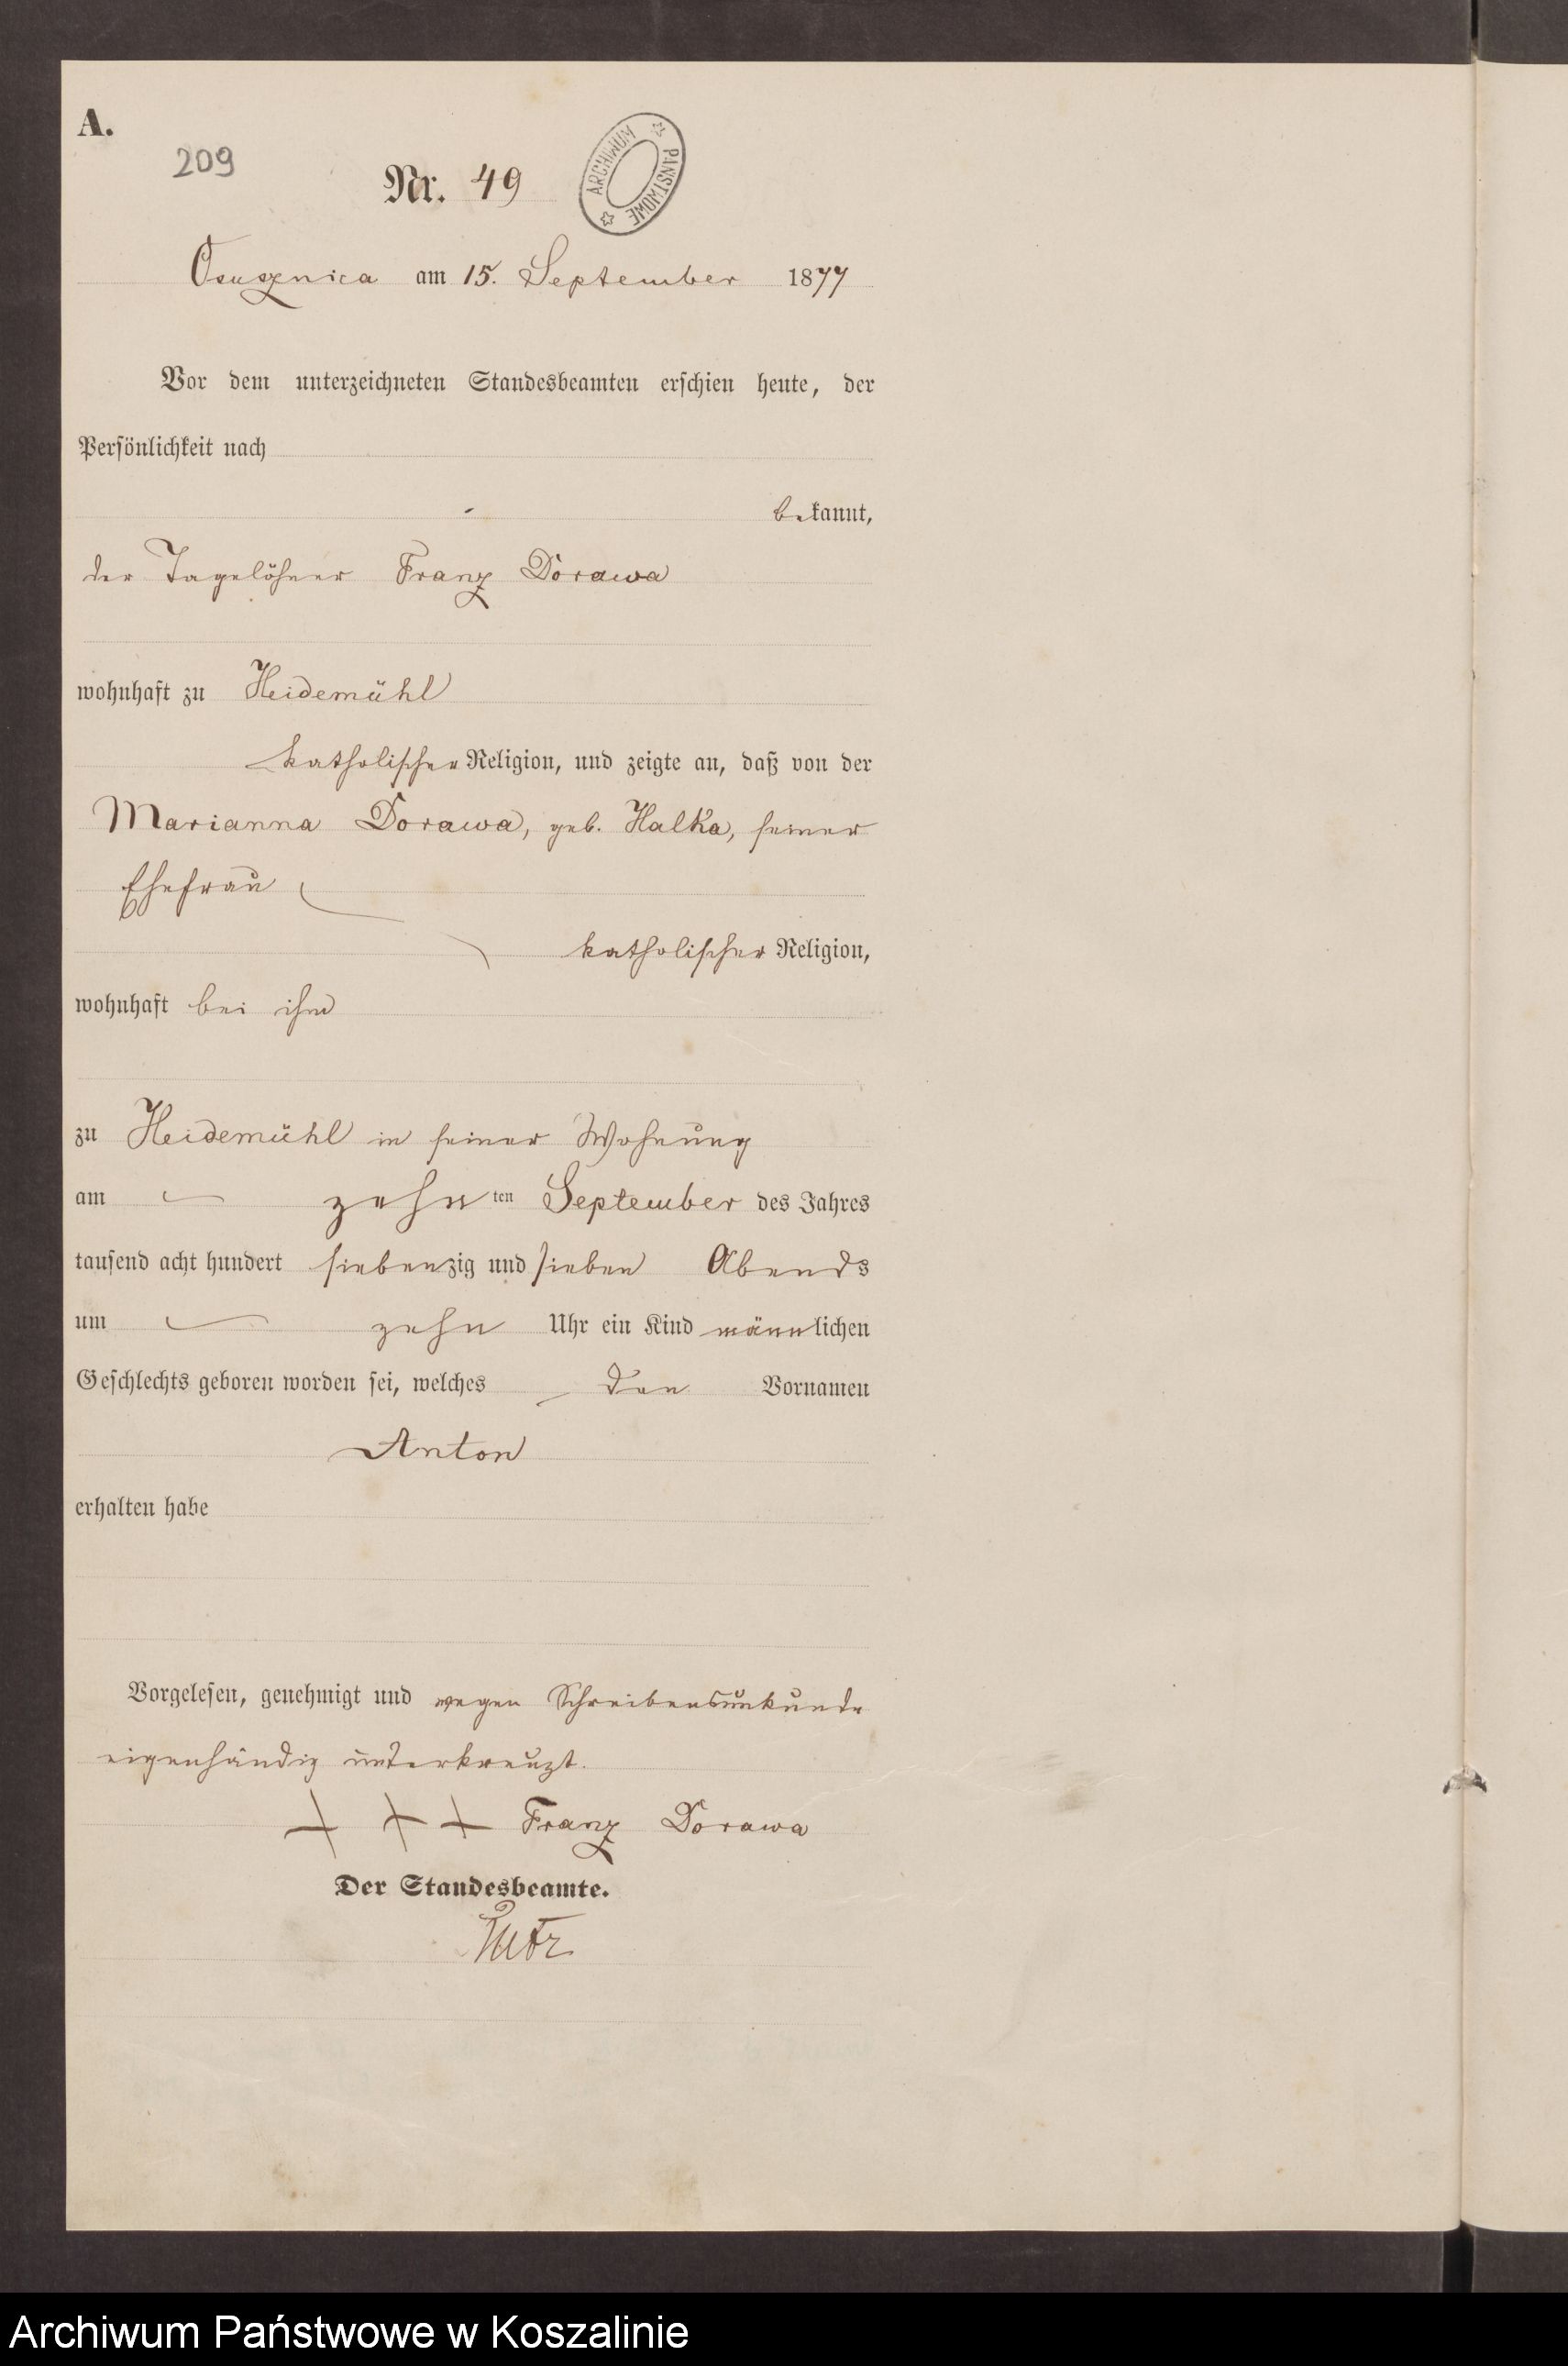 A.
209
Nr. 49
ARCHIWUM PAŃSTWOWE
Osusznica am 15. September 1877
Vor dem unterzeichneten Standesbeamten erschien heute, der
Persönlichkeit nach
bekannt,
der Tagelöhner Franz Dorawa
wohnhaft zu Heidemühl
katholischer Religion, und zeigte an, daß von der
Marianna Dorawa, geb. Halka, seiner
Ehefrau
katholischer Religion,
wohnhaft bei ihm
zu Heidemühl in seiner Wohnung
am zehnten September des Jahres
tausend acht hundert siebenzig und sieben Abends
um zehn Uhr ein Kind männlichen
Geschlechts geboren worden sei, welches den Vornamen
Anton
erhalten habe
Vorgelesen, genehmigt und wegen Schreibensunkunde
eigenhändig unterkreuzt.
+ + + Franz Dorawa
Der Standesbeamte.
Archiwum Państwowe w Koszalinie